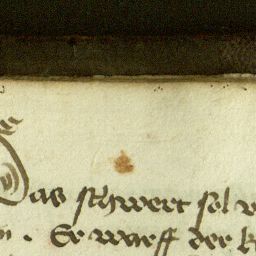 Das schwert sol
. Er warff der k